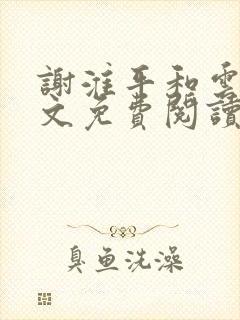 謝淮平和雲
文免費閱讀
臭魚洗澡